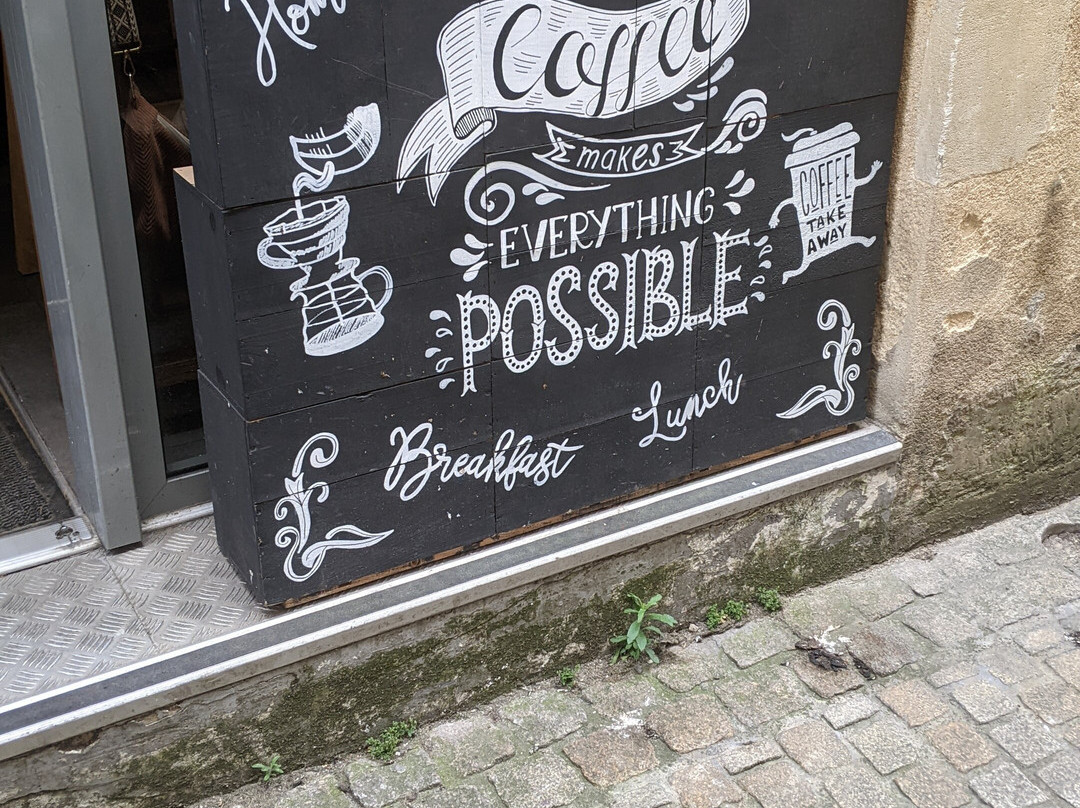 Coffee
makes
EVERYTHING
POSSIBLE
COFFEE
TAKE
AWAY
Breakfast
Lunch